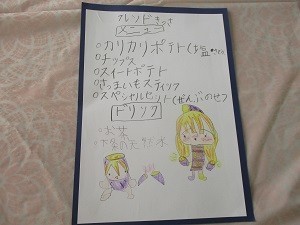 フレンドきっさ
メニュー
○カリカリポテト(塩
○チップス
○スイートポテト
○さつまいもスティック
○スペシャルセット(ぜんぶのせ
ドリンク
○お茶